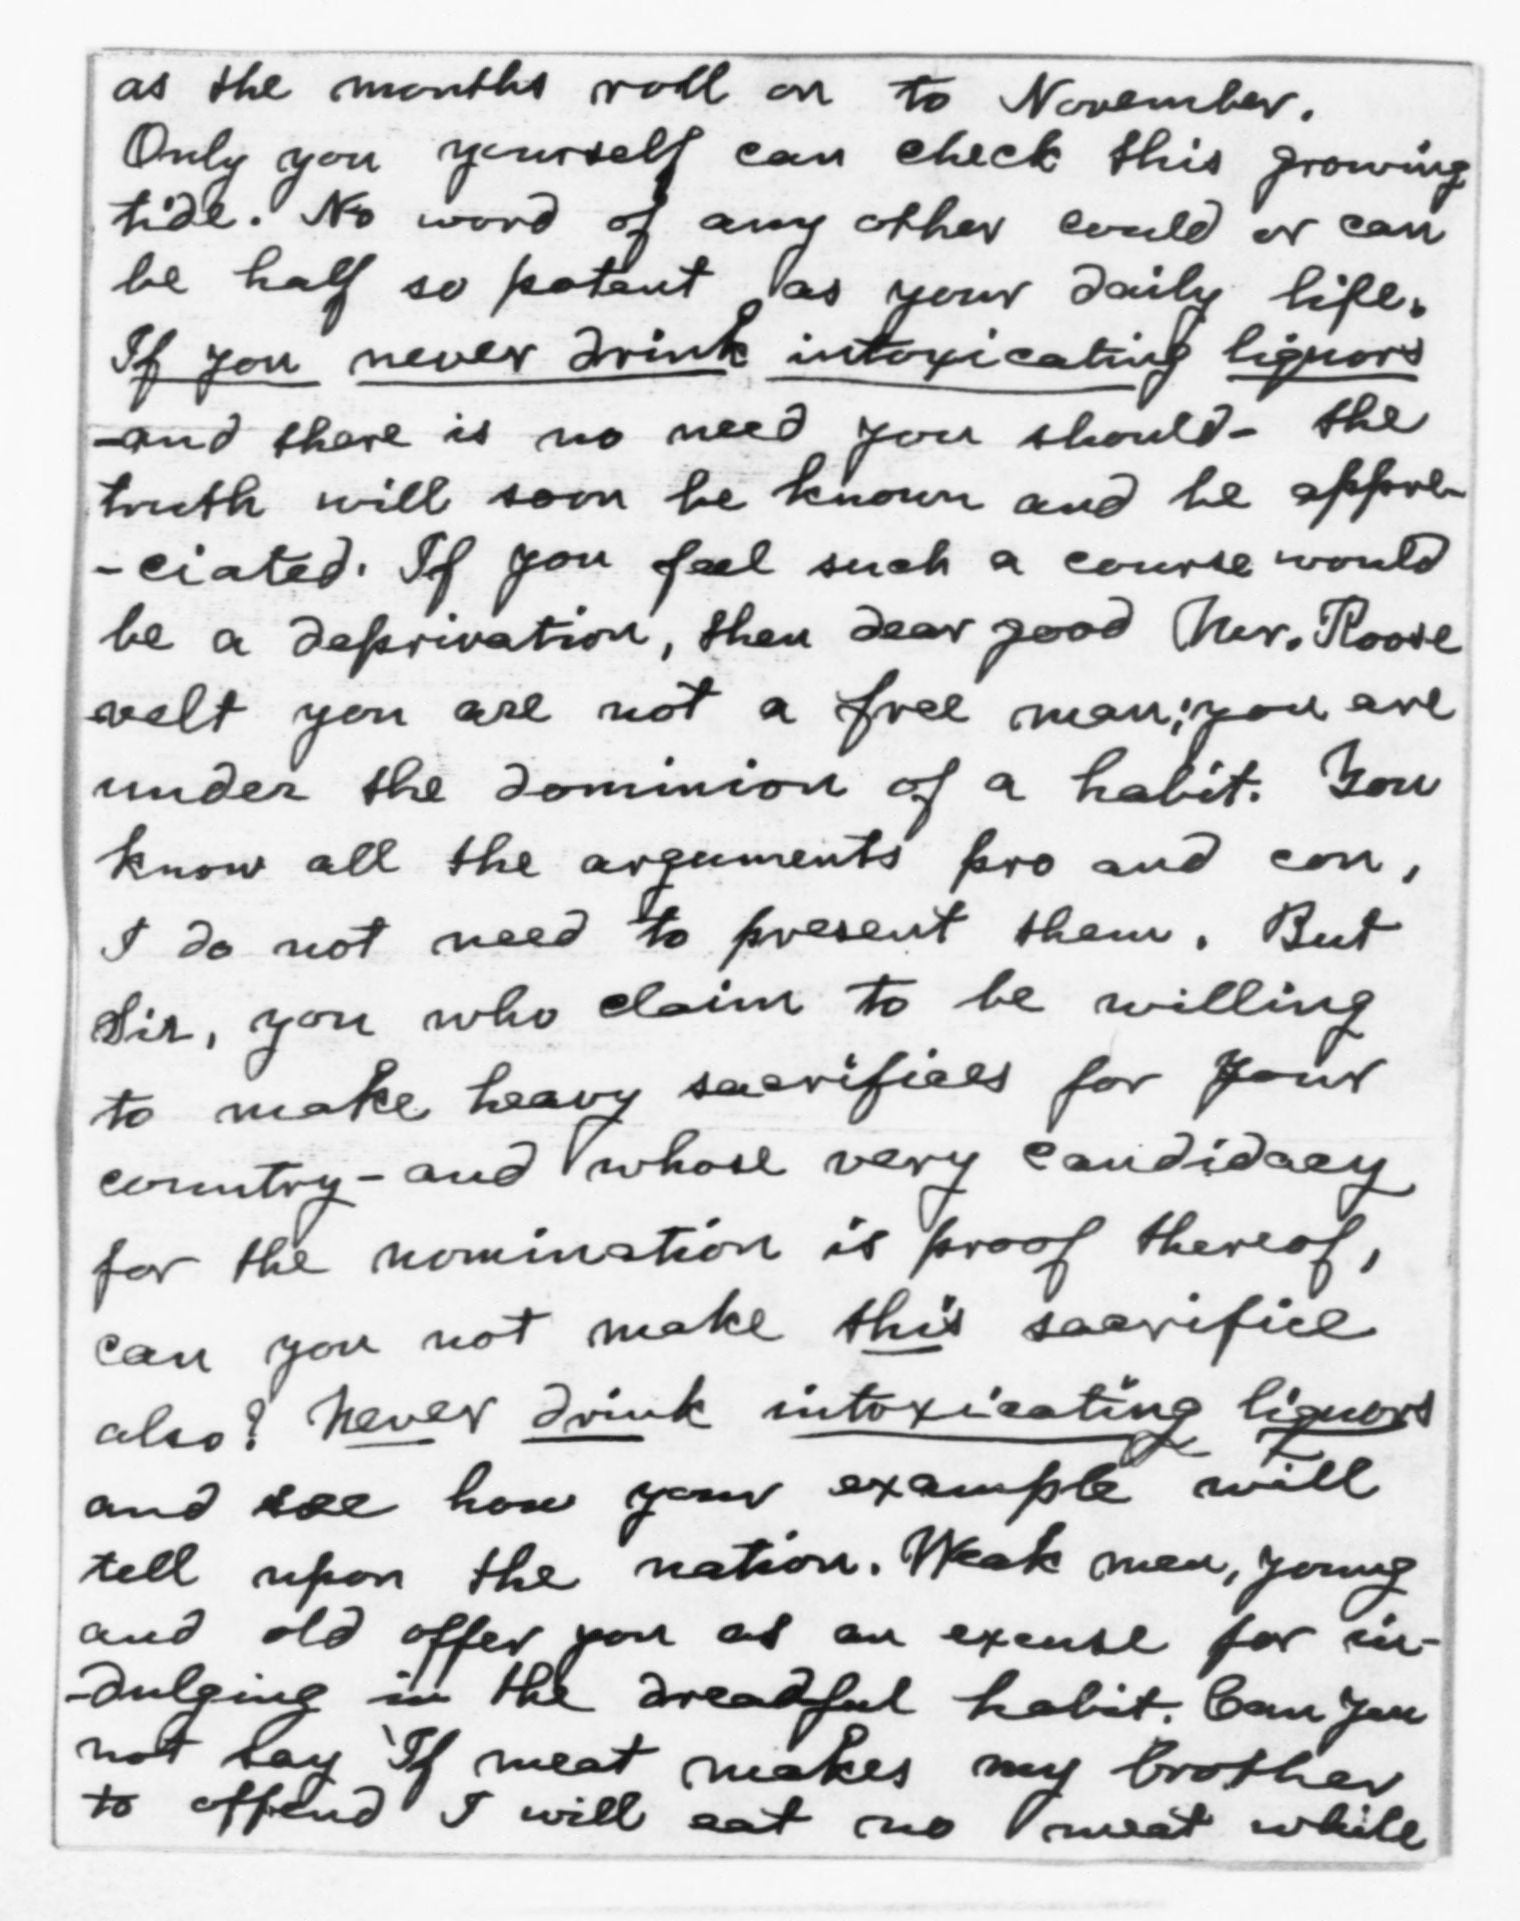 as the months roll on to November.
Only you yourself can check this growing
tide. No word of any other could or can
be half so potent as your daily life.
If you never drink intoxicating liquors
-and there is no need you should- the
truth will soon be known and be appre-
-ciated. If you feel such a course would
be a deprivation, then dear good Mr. Roose
velt you are not a free man; you are
under the dominion of a habit. You
know all the arguments pro and con,
I do not need to present them. But
Sir, you who claim to be willing
to make heavy sacrifices for your
country - and whose very candidacy
for the nomination is proof thereof,
can you not make this sacrifice
also? Never drink intoxicating liquors
and see how your example will
tell upon the nation. Weak men, young
and old offer you as an excuse for in-
-dulging in the dreadful habit. Can you
not say 'If meat makes my brother
to offend I will eat no meat while